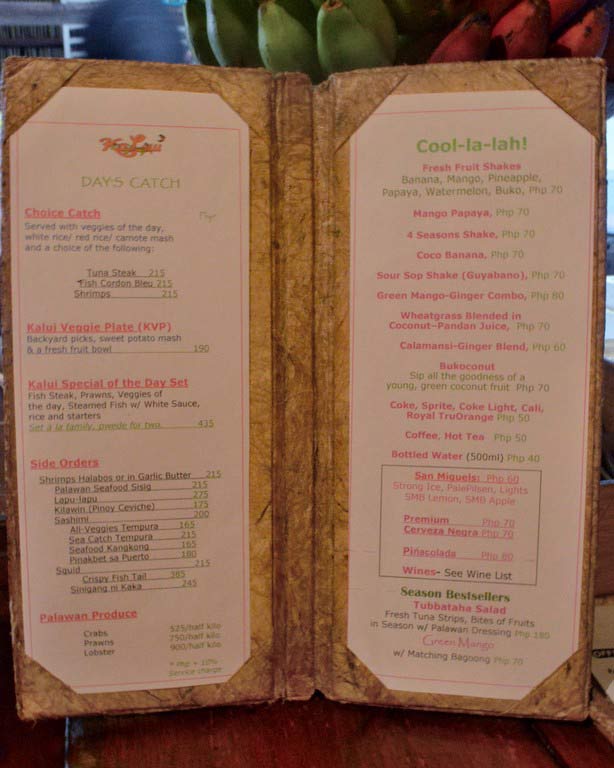 KaLui
DAYS CATCH
Choice Catch
Served with veggies of the day,
white rice/ red rice/ camote mash
and a choice of the following:
Tuna Steak 215
*Fish Cordon Bleu 215
Shrimps 215
Kalui Veggie Plate (KVP)
Backyard picks, sweet potato mash
& a fresh fruit bowl 190
Kalui Special of the Day Set
Fish Steak, Prawns, Veggies of
the day, Steamed Fish w/ White Sauce,
rice and starters
Set à la family, pwede for two. 435
Side Orders
Shrimps Halabos or in Garlic Butter 215
Palawan Seafood Sisig 215
Lapu-lapu 275
Kilawin (Pinoy Ceviche) 175
Sashimi 200
All-Veggies Tempura 165
Sea Catch Tempura 215
Seafood Kangkong 165
Pinakbet sa Puerto 180
Squid 215
Crispy Fish Tail 385
Sinigang ni Kaka 245
Palawan Produce
Crabs 525/half kilo
Prawns 750/half kilo
Lobster 900/half kilo
+ 10%
Service charge
Cool-la-lah!
Fresh Fruit Shakes
Banana, Mango, Pineapple,
Papaya, Watermelon, Buko, Php 70
Mango Papaya, Php 70
4 Seasons Shake, Php 70
Coco Banana, Php 70
Sour Sop Shake (Guyabano), Php 70
Green Mango-Ginger Combo, Php 80
Wheatgrass Blended in
Coconut-Pandan Juice, Php 70
Calamansi-Ginger Blend, Php 60
Bukoconut
Sip all the goodness of a
young, green coconut fruit Php 70
Coke, Sprite, Coke Light, Cali,
Royal TruOrange Php 50
Coffee, Hot Tea Php 50
Bottled Water (500ml) Php 40
San Miguels: Php 60
Strong Ice, PalePilsen, Lights
SMB Lemon, SMB Apple
Premium Php 70
Cerveza Negra Php 70
Piñacolada Php 80
Wines- See Wine List
Season Bestsellers
Tubbataha Salad
Fresh Tuna Strips, Bites of Fruits
in Season w/ Palawan Dressing Php 180
Green Mango
w/ Matching Bagoong Php 70